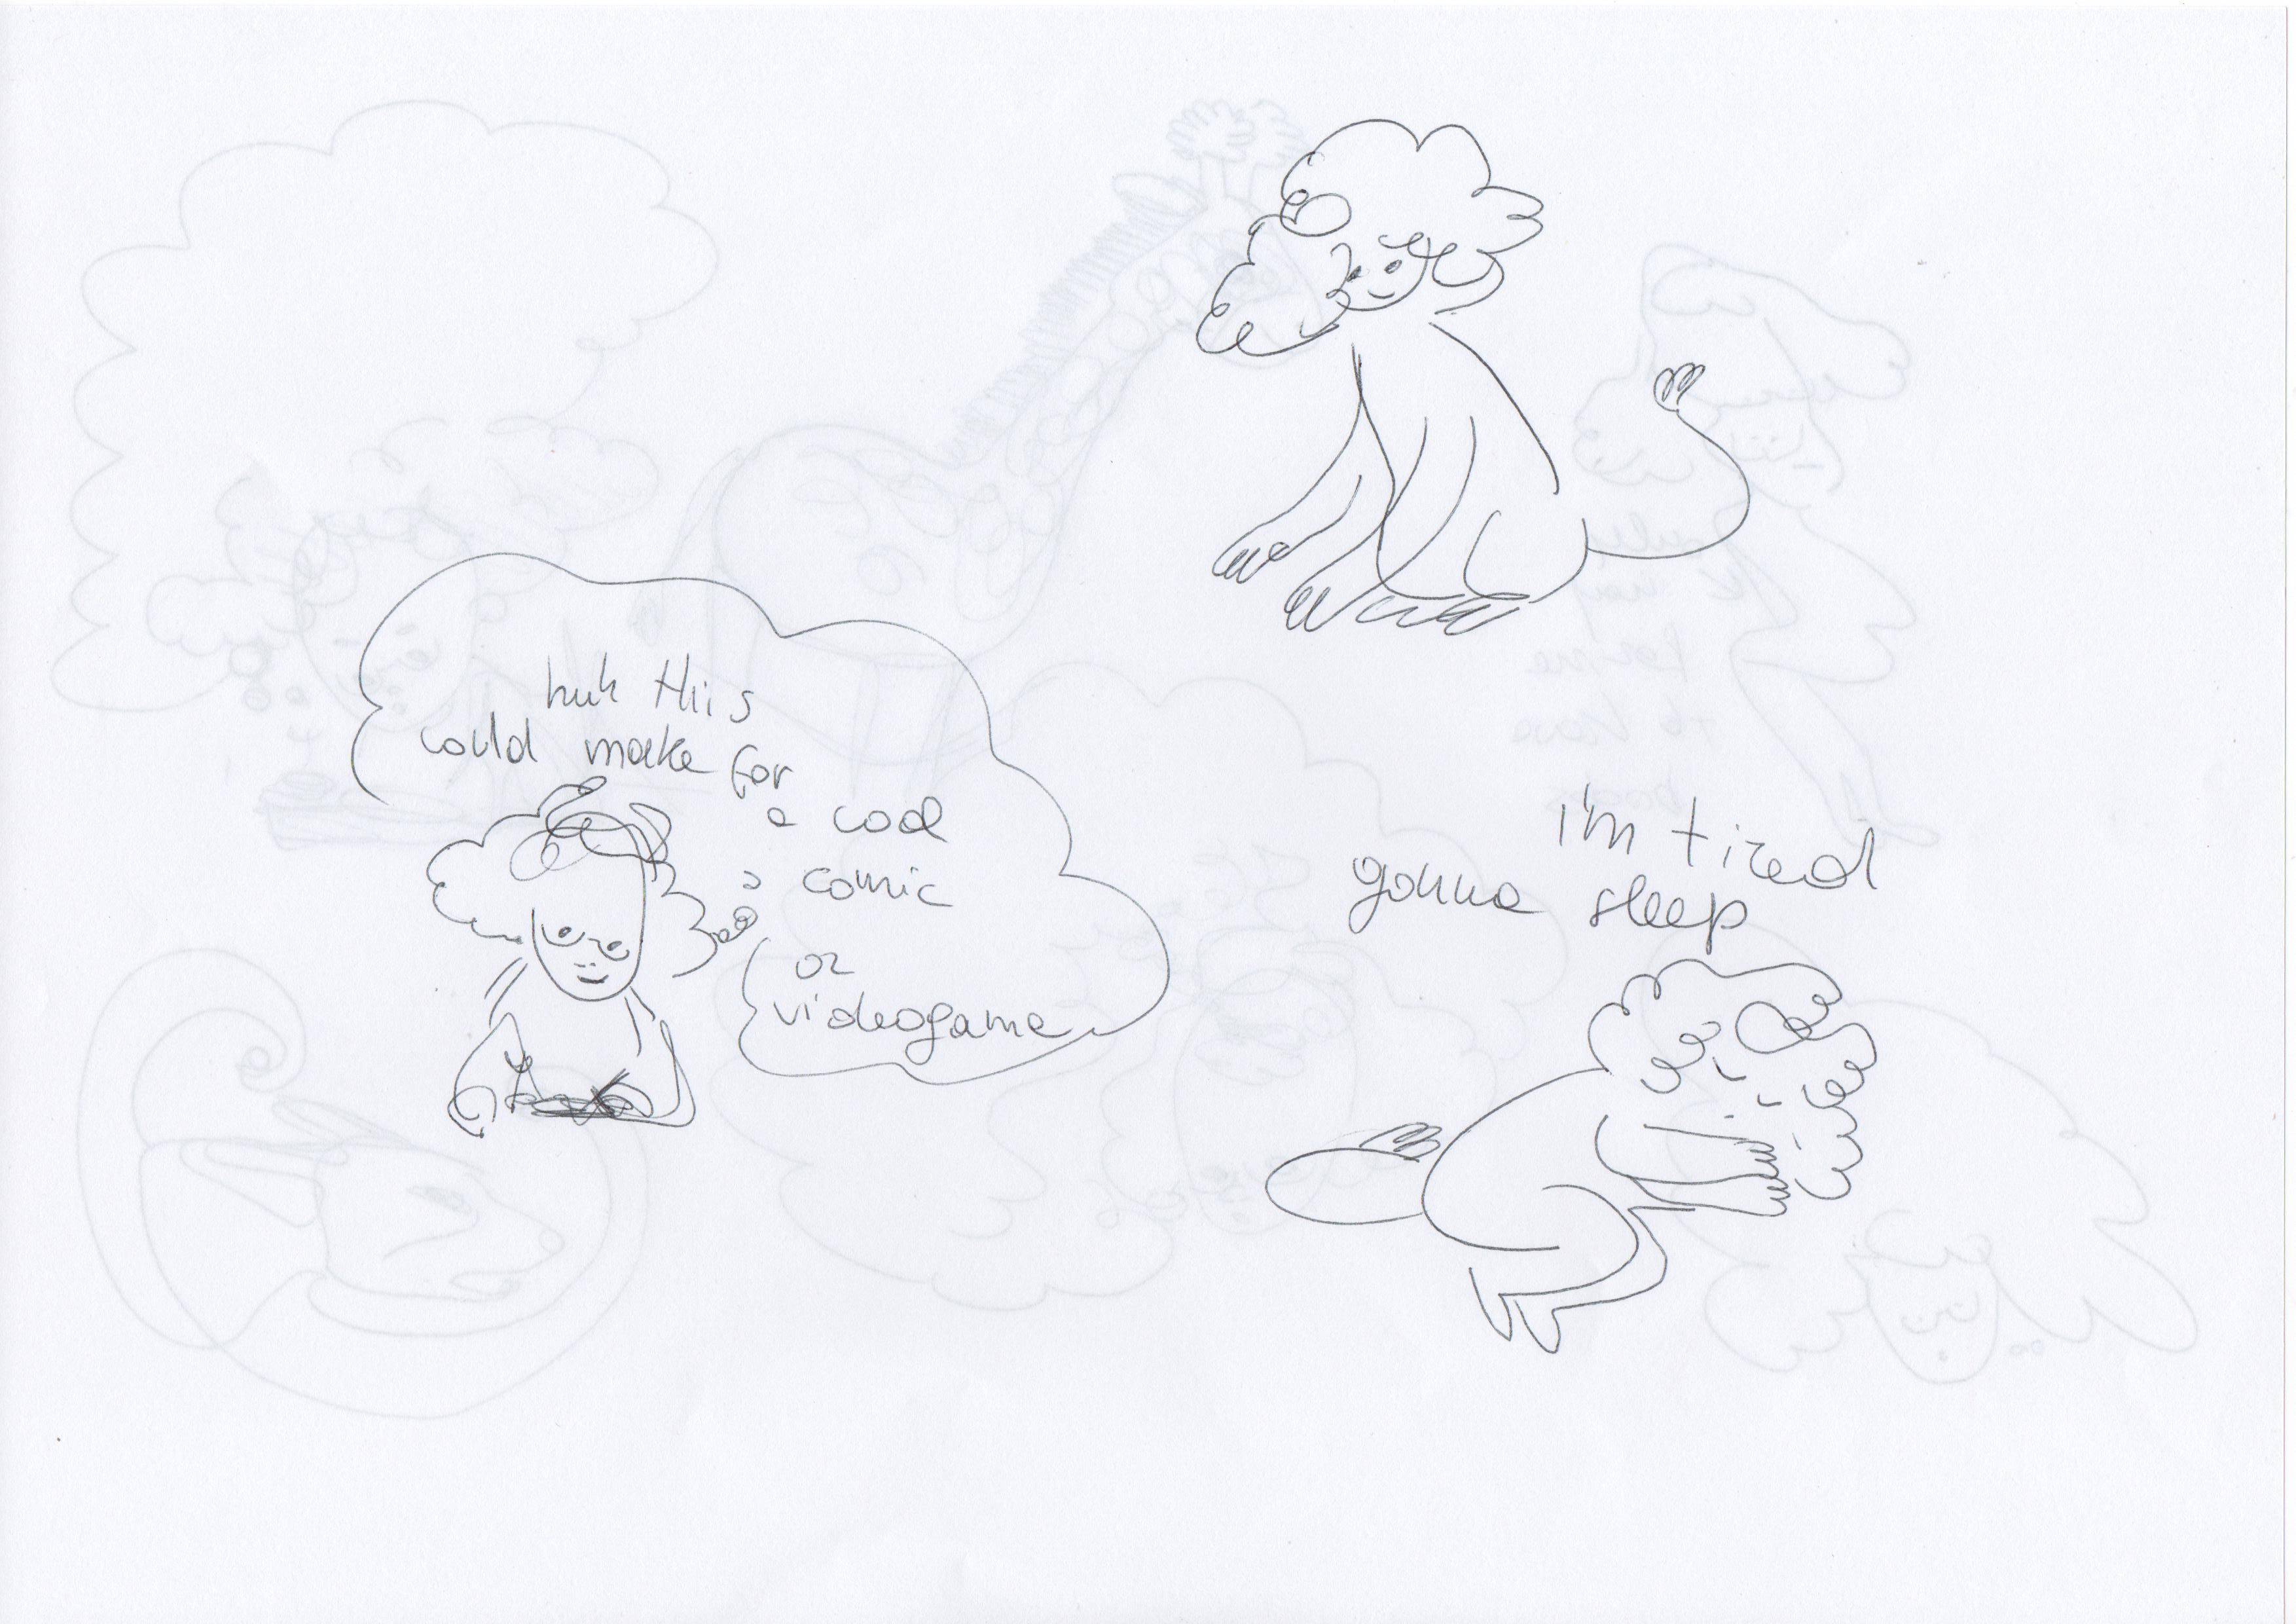 huh this
could make for
a cool
comic
or
videogame
i'm tired
gonna sleep